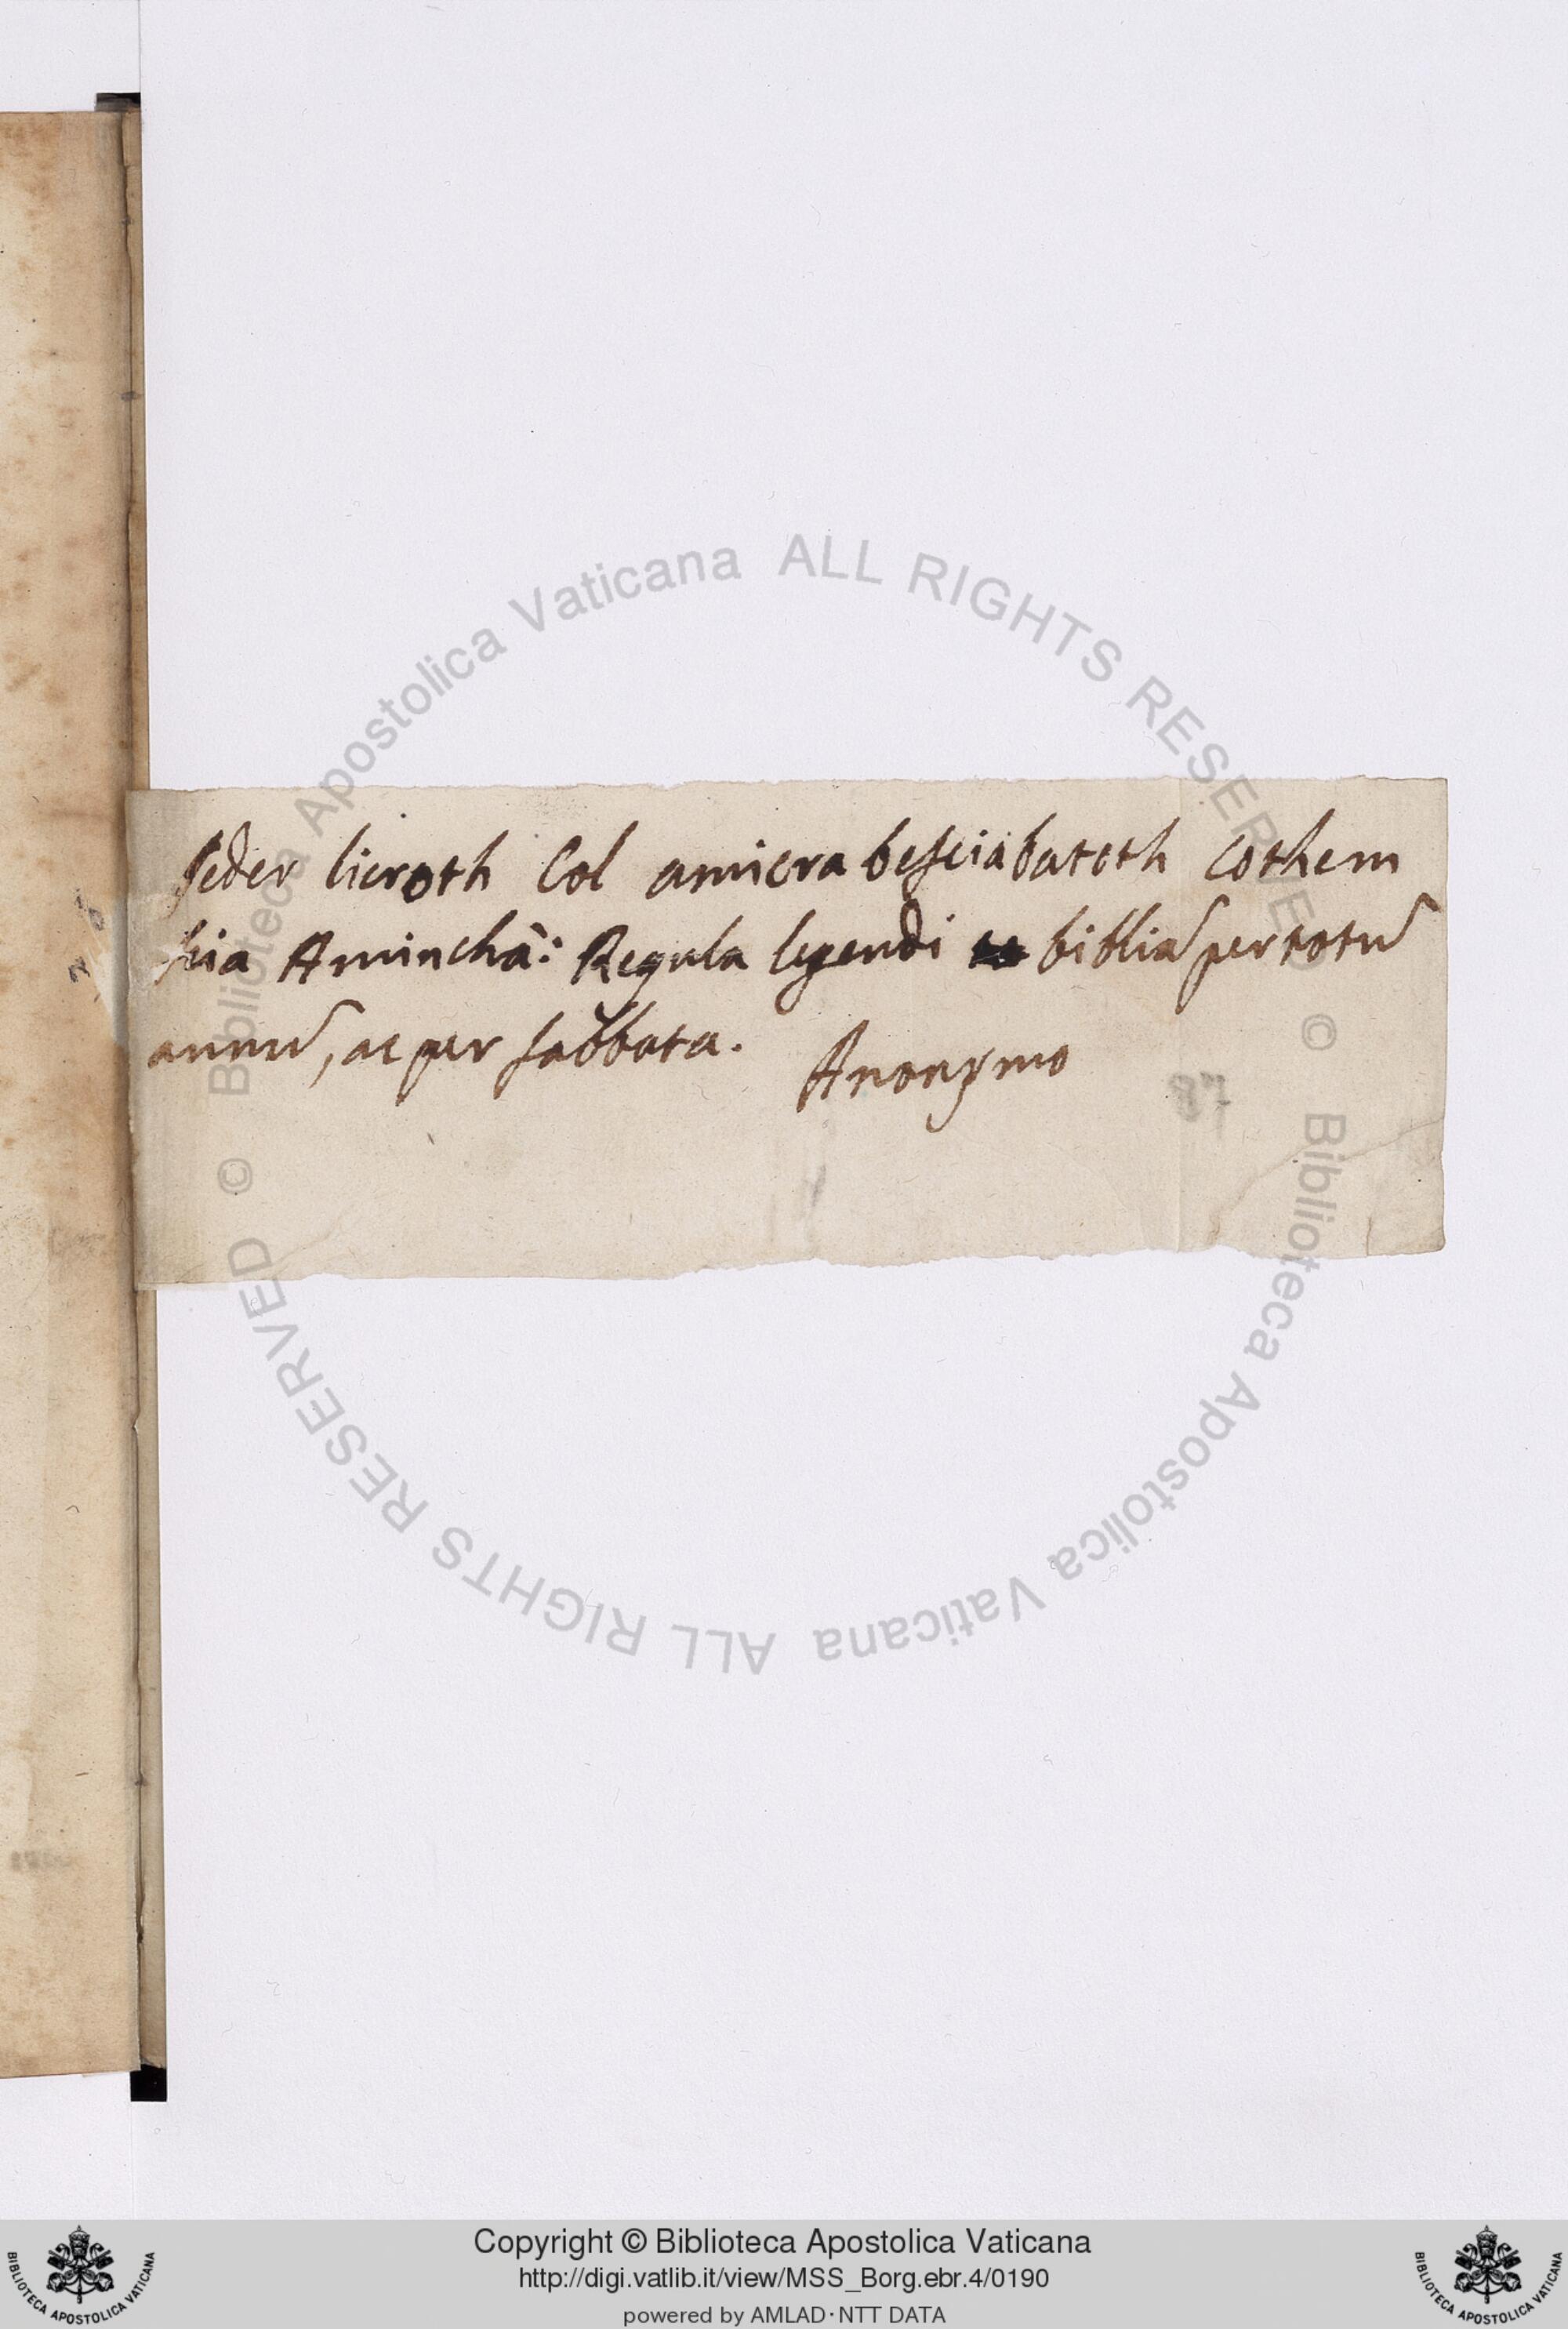 Seder licroth Col amicra besciabatoth cothem
scia Aminchà: Regula legendi bibliã per totũ
annũ, ac per sabbata.
Anonymo
Copyright © Biblioteca Apostolica Vaticana
http://digi.vatlib.it/view/MSS_Borg.ebr.4/0190
powered by AMLAD·NTT DATA
© Biblioteca Apostolica Vaticana ALL RIGHTS RESERVED
© Biblioteca Apostolica Vaticana ALL RIGHTS RESERVED
BIBLIOTECA APOSTOLICA VATICANA
BIBLIOTECA APOSTOLICA VATICANA